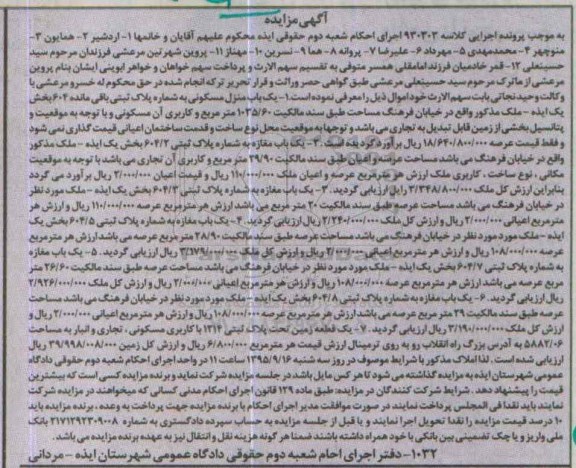 آگهی مزایده
به موجب پرونده اجرایی کلاسه ۹۳۰۳۰۳ اجرای احکام شعبه دوم حقوقی ایذه محکوم علیهم آقایان و خانمها ۱- اردشیر ۲- همایون ۳-
منوچهر ۴- محمدمهدی ۵- مهرداد ۶- علیرضا ۷- پروانه ۸- هما ۹- نسرین ۱۰- مهناز ۱۱- پروین شهرتین مرعشی فرزندان مرحوم سید
حسینعلی ۱۲- قمر خادمیان فرزند امامقلی همسر متوفی به تقسیم سهم الارث و پرداخت سهم خواهان و خواهر ابوینی ایشان بنام پروین
مرعشی از ماترک مرحوم سید حسینعلی مرعشی طبق گواهی حصر وراثت و قرار تحریر ترکه انجام شده در حق محکوم له خسرو مرعشی با
وکالت وحید نجاتی بابت سهم الارث خود اموال ذیل را معرفی نموده است. ۱- یک باب منزل مسکونی به شماره پلاک ثبتی باقی مانده ۶۰۴ بخش
یک ایذه - ملک مذکور واقع در خیابان فرهنگ مساحت طبق سند مالکیت ۱۰۳۵/۶۰ متر مربع و کاربری آن مسکونی و با توجه به موقعیت و
پتانسیل بخشی از زمین قابل تبدیل به تجاری می باشد و توجها به موقعیت محل نوع ساخت و قدمت ساختمان اعیانی قیمت گذاری نمی شود
و فقط قیمت عرصه ۱۸/۶۴۰/۸۰۰/۰۰۰ ریال برآورد گردیده است. ۲- یک باب مغازه به شماره پلاک ثبتی ۶۰۴/۲ بخش یک ایذه - ملک مذکور
واقع در خیابان فرهنگ می باشد مساحت عرصه و اعیان طبق سند مالکیت ۲۹/۹۰ متر مربع و کاربری آن تجاری می باشد با توجه به موقعیت
مکانی، نوع ساخت، کاربری ملک ارزش هر مترمربع عرصه و اعیان ملک ۱۱۰/۰۰۰/۰۰۰ ریال و قیمت اعیان ۲/۰۰۰/۰۰۰ ریال برآورد می گردد
بنابراین ارزش کل ملک ۳/۳۴۸/۸۰۰/۰۰۰ ریال ارزیابی گردید. ۳- یک باب مغازه به شماره پلاک ثبتی ۶۰۴/۳ بخش یک ایذه - ملک مورد نظر
در خیابان فرهنگ می باشد مساحت عرصه طبق سند مالکیت ۲۰ متر مربع می باشد ارزش هر مترمربع عرصه ۱۱۰/۰۰۰/۰۰۰ ریال و ارزش هر
مترمربع اعیانی ۲/۰۰۰/۰۰۰ ریال و ارزش کل ملک ۲/۲۴۰/۰۰۰/۰۰۰ ریال ارزیابی گردید. ۴- یک باب مغازه به شماره پلاک ثبتی ۶۰۴/۵ بخش یک
ایذه- ملک مورد مورد نظر در خیابان فرهنگ می باشد مساحت عرصه طبق سند مالکیت ۲۸/۹۰ متر مربع عرصه می باشد ارزش هر مترمربع
عرصه ۱۰۸/۰۰۰/۰۰۰ ریال و ارزش هر مترمربع اعیانی ۲/۰۰۰/۰۰۰ ریال و ارزش کل ملک ۳/۱۷۹/۰۰۰/۰۰۰ ریال ارزیابی گردید. ۵- یک باب مغازه
به شماره پلاک ثبتی ۶۰۴/۷ بخش یک ایذه - ملک مورد مورد نظر در خیابان فرهنگ می باشد مساحت عرصه طبق سند مالکیت ۲۶/۶۰ متر
مربع عرصه می باشد ارزش هر مترمربع عرصه ۱۰۸/۰۰۰/۰۰۰ ریال و ارزش هر مترمربع اعیانی ۲/۰۰۰/۰۰۰ ریال و ارزش کل ملک ۲/۹۲۶/۰۰۰/۰۰۰
ریال ارزیابی گردید. ۶- یک باب مغازه به شماره پلاک ثبتی ۶۰۴/۸ بخش یک ایذه - ملک مورد مورد نظر در خیابان فرهنگ می باشد مساحت
عرصه طبق سند مالکیت ۲۹ متر مربع عرصه می باشد ارزش هر مترمربع عرصه ۱۰۸/۰۰۰/۰۰۰ ریال و ارزش هر مترمربع اعیانی ۲/۰۰۰/۰۰۰ ریال و
ارزش کل ملک ۳/۱۹۰/۰۰۰/۰۰۰ ریال ارزیابی گردید. ۷- یک قطعه زمین تحت پلاک ثبتی ۱۳۱۴ با کاربری مسکونی، تجاری و انبار به مساحت
۵۸۸۲/۰۶ به آدرس بزرگ راه انقلاب رو به روی ترمینال ارزش قیمت هر مترمربع ۶/۸۰۰/۰۰۰ ریال و ارزش کل زمین ۳۹/۹۹۸/۰۰۸/۰۰۰ ریال
ارزیابی شده است. لذا املاک مذکور با شرایط موصوف در روز سه شنبه ۱۳۹۵/۹/۱۶ ساعت ۱۱ در واحد اجرای احکام شعبه دوم حقوقی دادگاه
عمومی شهرستان ایذه به مزایده گذاشته می شود تا هر کس مایل باشد در جلسه مزایده شرکت نماید و برنده مزایده کسی است که بیشترین
قیمت را پیشنهاد دهد. شرایط شرکت کنندگان در مزایده: طبق ماده ۱۲۹ قانون اجرای احکام مدنی کسانی که میخواهند در مزایده شرکت
نمایند باید نقدا فی المجلس پرداخت نمایند در صورت موافقت مدیر اجرای احکام با برنده مزایده جهت پرداخت به وعده، برنده مزایده باید
۱۰ درصد قیمت مزایده را نقدا تحویل اجرا نمایند و یا قبل از جلسه مزایده به حساب سپرده دادگستری به شماره ۲۱۷۱۲۹۲۳۰۹۰۰۸ بانک
ملی واریز و یا چک تضمینی بین بانکی با خود همراه داشته باشند ضمنا هر گونه هزینه نقل و انتقال نیز به عهده برنده مزایده می باشد.
۱۰۳۲- دفتر اجرای احام شعبه دوم حقوقی دادگاه عمومی شهرستان ایذه - مردانی